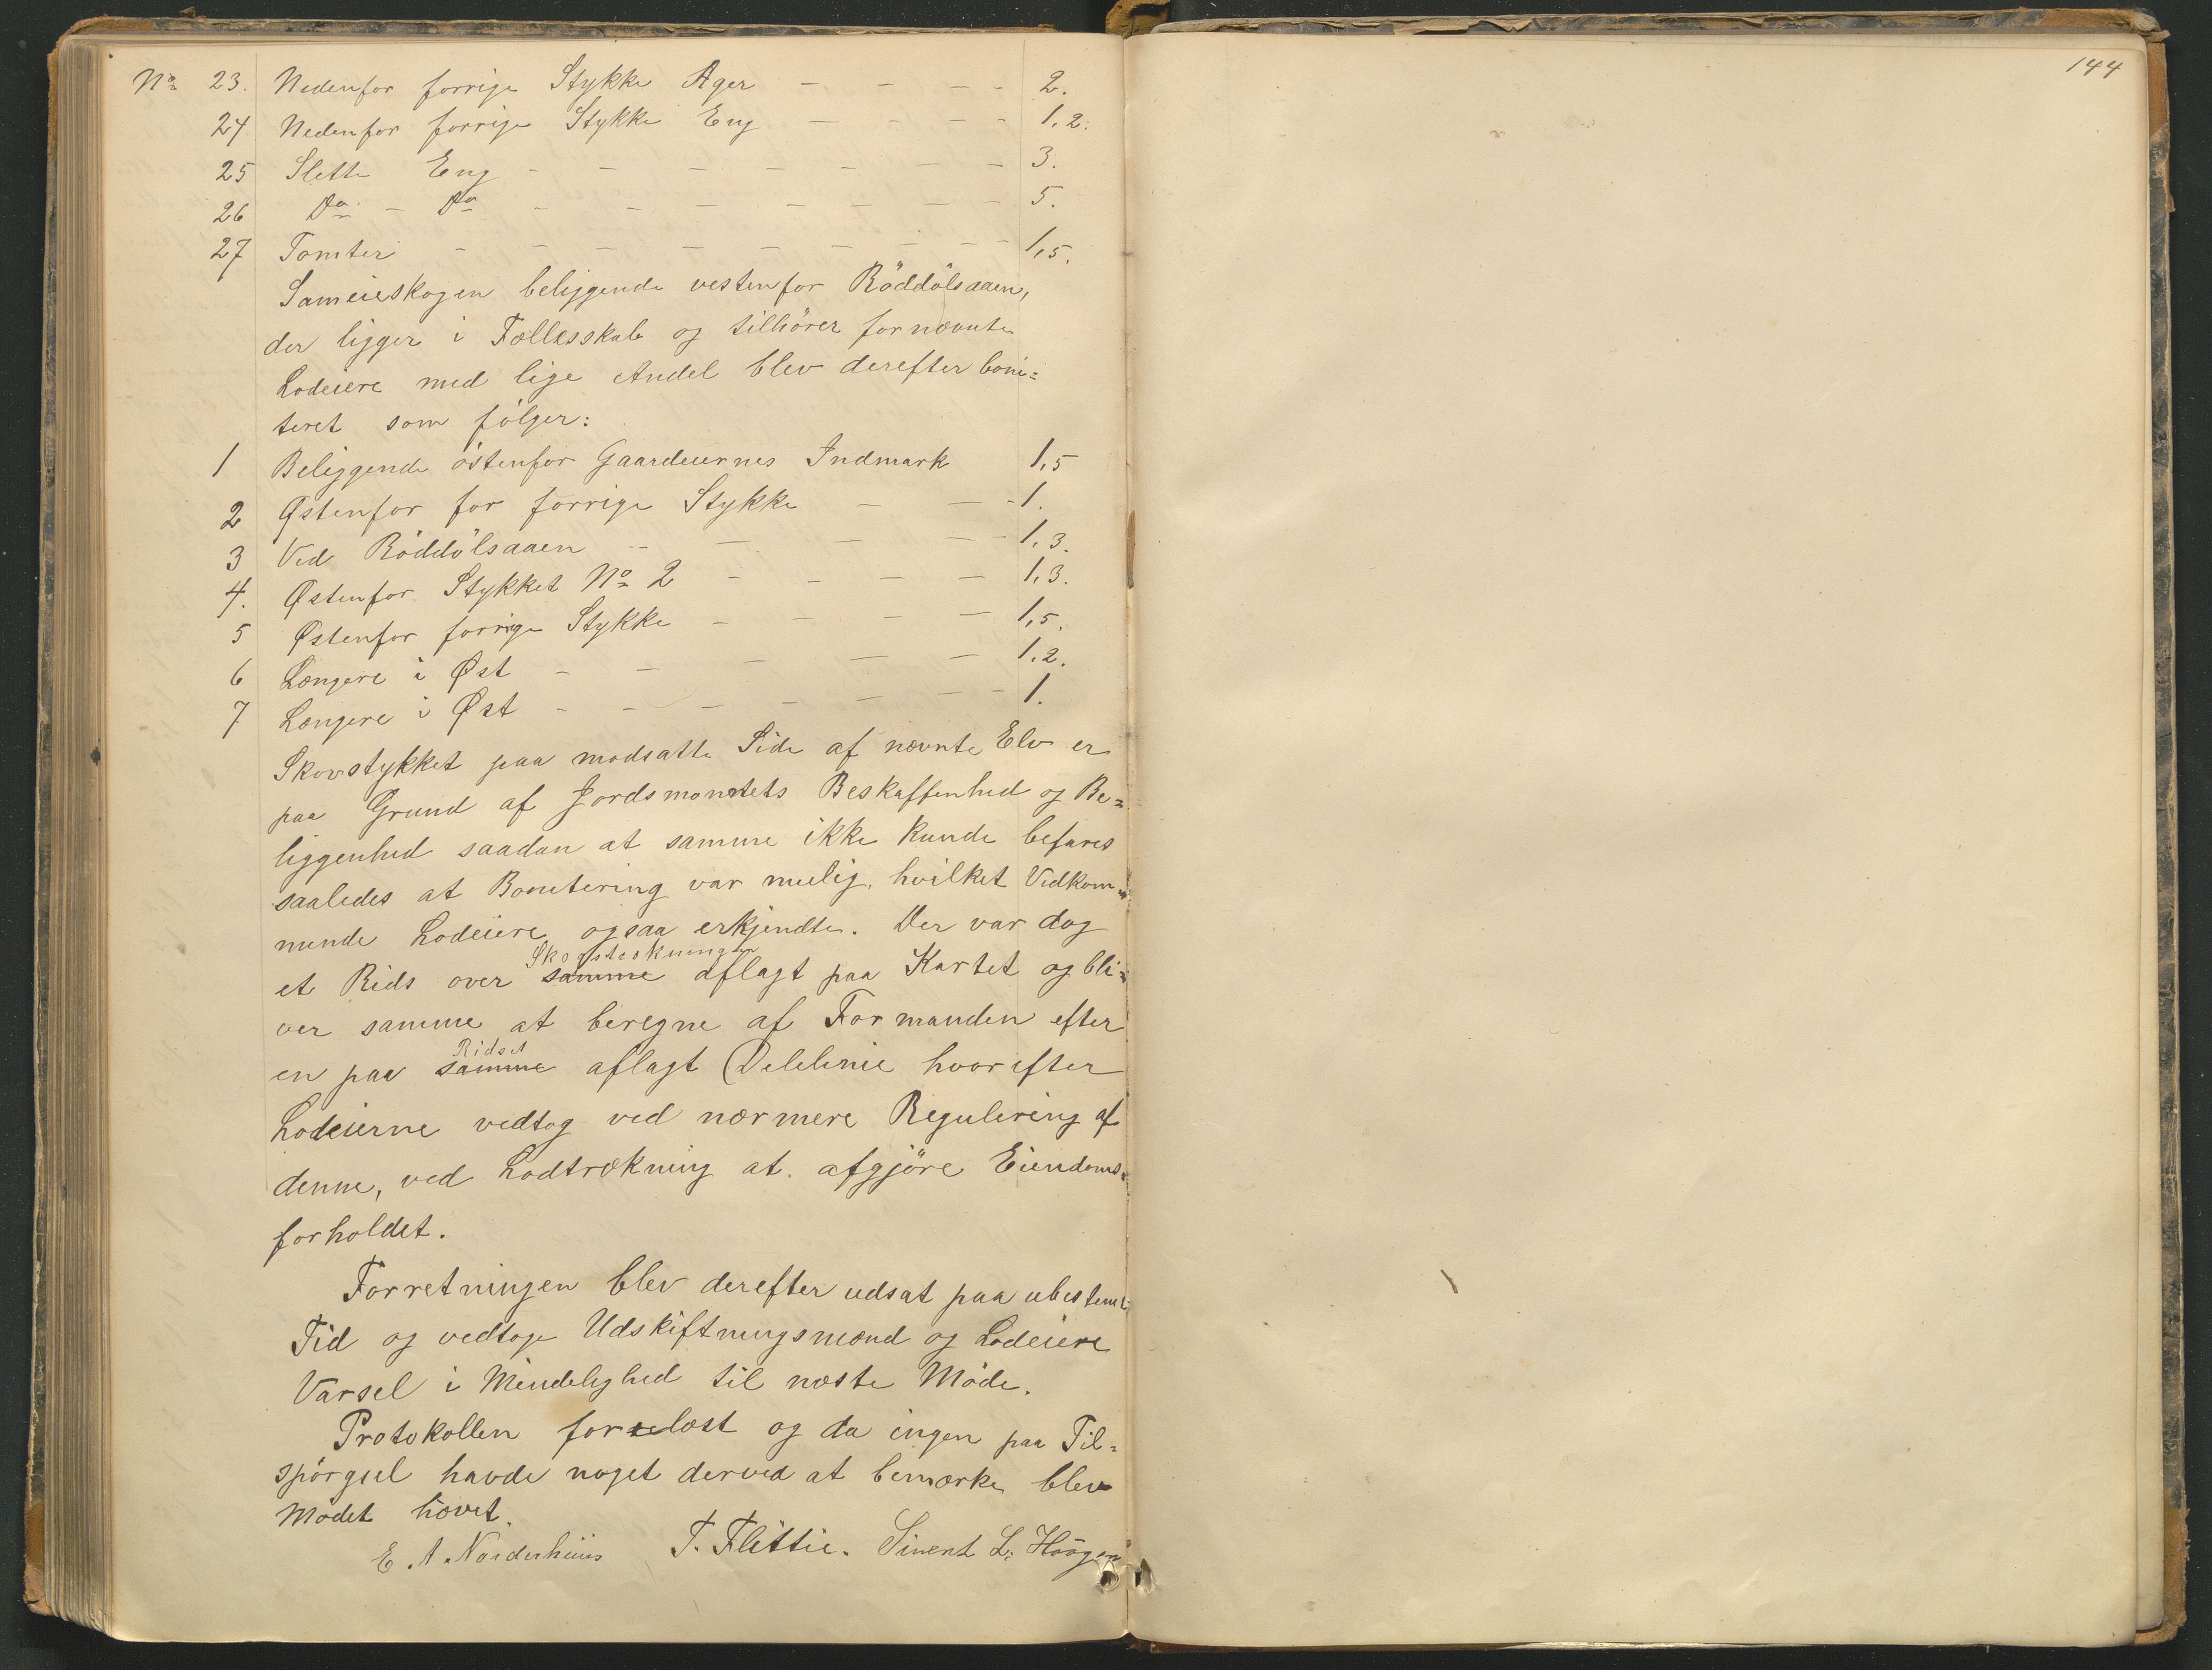 No 23. Nedenfor forrige Stykke Ager - - - - 2.
24 Nedenfor forrige Stykke Eng - - - - 1,2.
25 Slette Eng - - - - - - - 3.
26 Do - Do - - - - - - - 5.
27 Tomter - - - - - - - - 1,5.
Sameieskogen beliggende vestenfor Röddölsaaen,
der ligger i Fællesskab og tilhörer fornævnte
Lodeiere med lige Andel blev derefter boni=
teret som fölger:
1 Beliggende östenfor Gaardeiernes Indmark 1,5
2 Østenfor for forrige Stykke - - - 1.
3 Ved Röddölsaaen - - - - - 1,3.
4. Østenfor Stykket No 2 - - - - 1,3.
5 Østenfor forrige Stykke - - - - 1,5.
6 Længere i Øst - - - - - 1.2.
7 Længere i Øst - - - - - - - 1.
Skovstykket paa modsatte Side af nævnte Elv er
paa Grund af Jordsmonnets Beskaffenhed og Be=
liggenhed saadan at samme ikke kunde befares
saaledes at Bonitering var mulig, hvilket Vedkom=
mende Lodeiere ogsaa erkjendte. Der var dog
Skogstrækningen
et Rids over samme aflagt paa Kartet og bli=
ver samme at beregne af Formanden efter
Ridset
en paa samme aflagt Delelinie hvorefter
Lodeierne vedtog ved nærmere Regulering af
denne, ved Lodtrækning at afgjöre Eiendoms=
forholdet.
Forretningen blev derefter udsat paa ubestemt
Tid og vedtoge Udskiftningsmænd og Lodeiere
Varsel i Mindelighed til næste Möde.
Protokollen forelæst og da ingen paa Til=
spörgsel havde noget derved at bemærke blev
Mödet hævet.
E. A. Norderhuus T. Flittie. Sivert L. Höögen
144